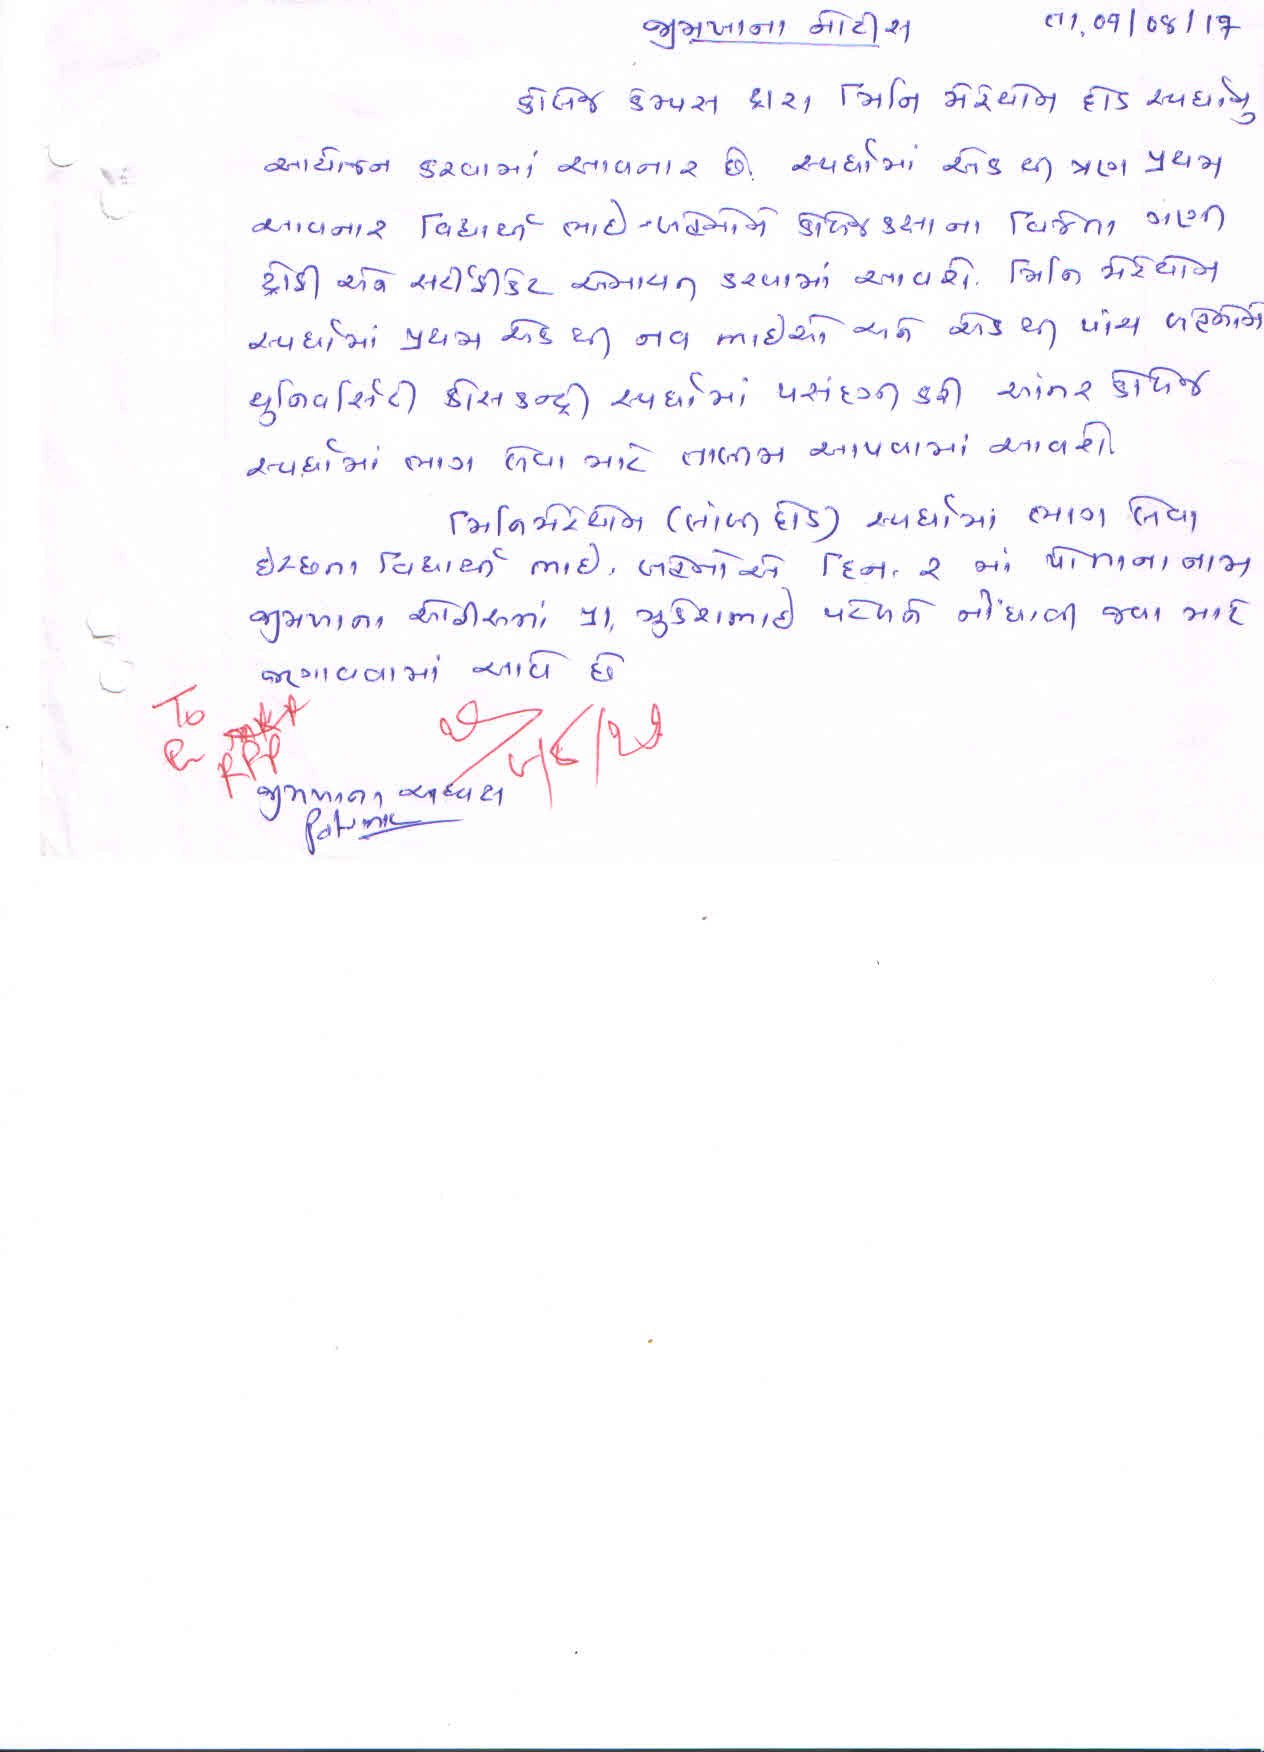 જીમખાના નોટીસ તા. 09/08/17
કોલેજ કેમ્પસ દ્વારા મિનિ મેરેથોન દોડ સ્પર્ધાનુ
આયોજન કરવામાં આવનાર છે. સ્પર્ધામાં એક થી ત્રણ પ્રથમ
આવનાર વિદ્યાર્થી ભાઈ-બહેનોને કોલેજ કક્ષાના વિજેતા ગણી
ટ્રોફી અને સર્ટીફીકેટ એનાયત કરવામાં આવશે. મિનિ મેરેથોન
સ્પર્ધામાં પ્રથમ એક થી નવ ભાઈઓ અને એક થી પાંચ બહેનોને
યુનિવર્સિટી ક્રોસકન્ટ્રી સ્પર્ધામાં પસંદગી કરી આંતર કોલેજ
સ્પર્ધામાં ભાગ લેવા માટે તાલીમ આપવામાં આવશે.
મિનિમેરેથોન (લાંબી દોડ) સ્પર્ધામાં ભાગ લેવા
ઈચ્છતા વિદ્યાર્થી ભાઈ, બહેનોએ દિન. ૨ માં પોતાના નામ
જીમખાના ઓફીસમાં પ્રા. મુકેશભાઈ પટેલને નોંધાવી જવા માટે
જણાવવામાં આવે છે
To
RPP
જીમખાના અધ્યક્ષ